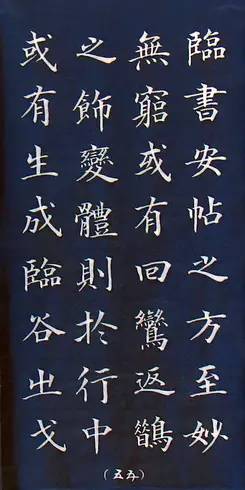 臨書安帖之方至妙
無窮或有回鸞返鵲
之飾變體則於行中
或有生成臨谷㞢戈